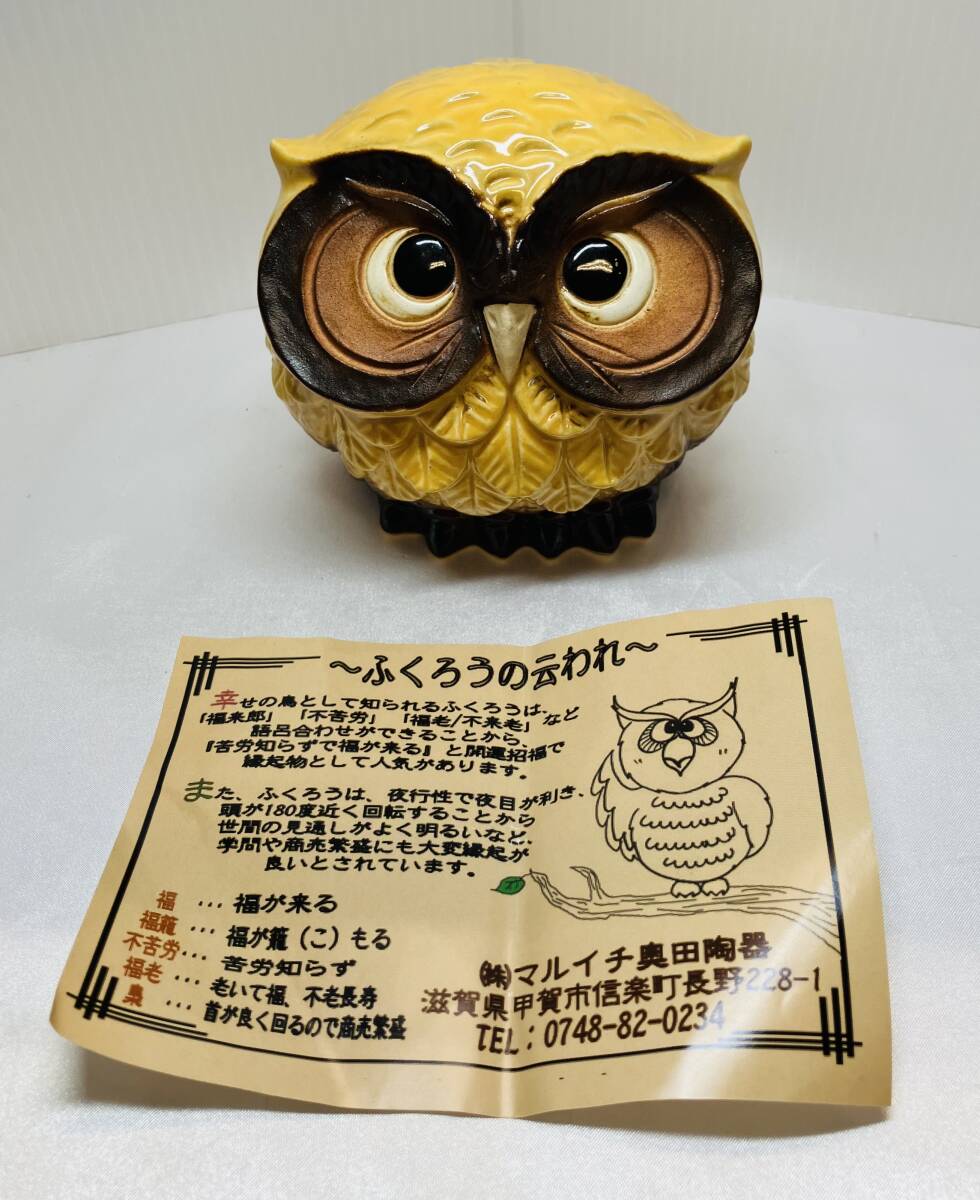 ～ふくろうの云われ～
幸せの鳥として知られるふくろうは、
「福来郎」「不苦労」「福老/不来老」など
語呂合わせができることから、
『苦労知らずで福が来る』と開運招福で
縁起物として人気があります。
また、ふくろうは、夜行性で夜目が利き、
頭が180度近く回転することから
世間の見通しがよく明るいなど、
学問や商売繁盛にも大変縁起が
良いとされています。
福 … 福が来る
福籠 … 福が籠（こ）もる
不苦労… 苦労知らず
福老 … 老いて福、不老長寿
梟 … 首が良く回るので商売繁盛
㈱マルイチ奥田陶器
滋賀県甲賀市信楽町長野228-1
TEL：0748-82-0234